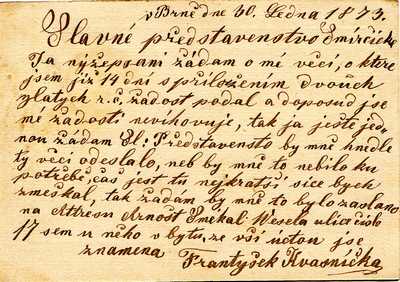 v Brně dne 30. Ledna 1873.
Slavné představenstvo Smířické
Ja nyžepsaní žádam o mé věci, o ktere
jsem již 14 dní s přiloženim dvouch
zlatych r.č. žadost podal a doposud jse
mé žadosti nevihovuje, tak ja ještě jed-
nou žádam Sl: Představensto by mně hnedle
ty věci odeslalo, neb by mně to nebilo ku
potřebě čas jest tu nejkratší sice bych
zmeškal, tak žadam by mně to bylo zaslano
na Attresu Arnošt Smekal Wesela ulice čislo
17 sem u něho v bytu, ze vší úctou jse
znamena Frantyšek Kvasnička